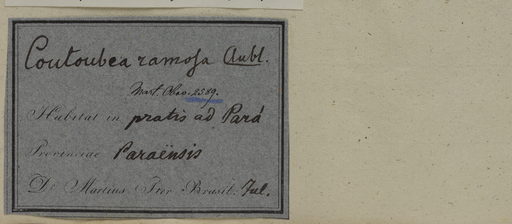 Coutoubea ramosa Aubl.
Mart. Obs. 2589.
Habitat in pratis ad Pará
Provinciae Paraënsis
Dr. Martius Iter Brasil. Jul.